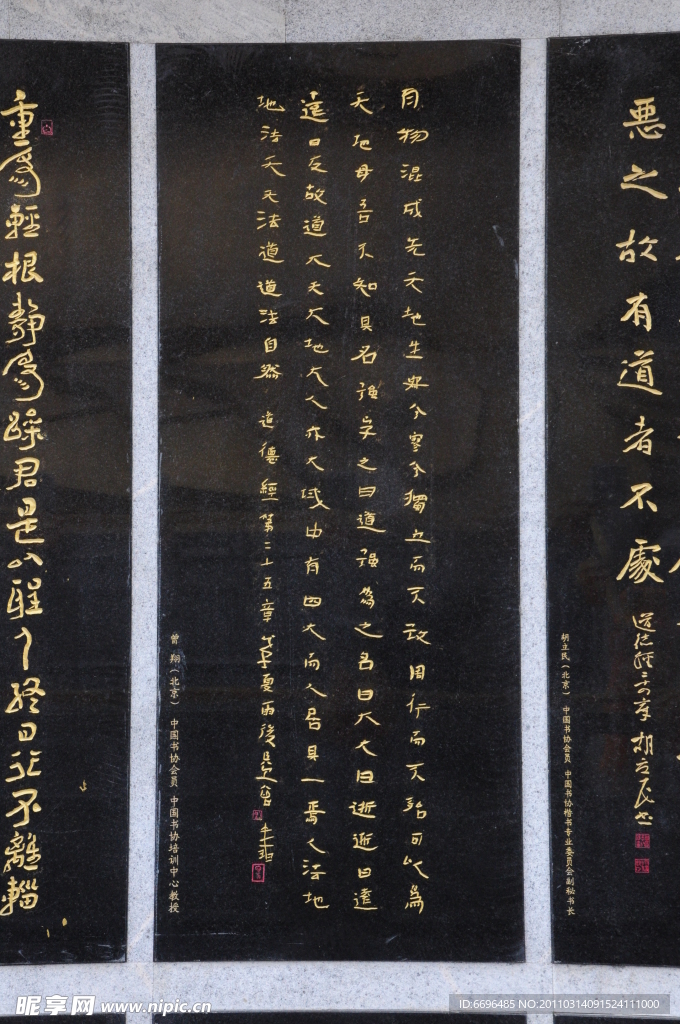 惡之故有道者不處
胡立民（北京） 中国书协会员 中国书协楷书专业委员会副秘书长
有物混成先天地生寂兮寥兮獨立而不改周行而不殆可以為
天地母吾不知其名強字之曰道強為之名曰大大曰逝逝曰遠
遠曰反故道大天大地大人亦大域中有四大而人居其一焉人法地
地法天天法道道法自然 道德經第二十五章 夏雨後
曾翔（北京） 中国书协会员 中国书协培训中心教授
重為輕根靜為躁君是以聖人終日行不離輜
昵享网 www.nipic.cn
ID:6696485 NO:20110314091524111000